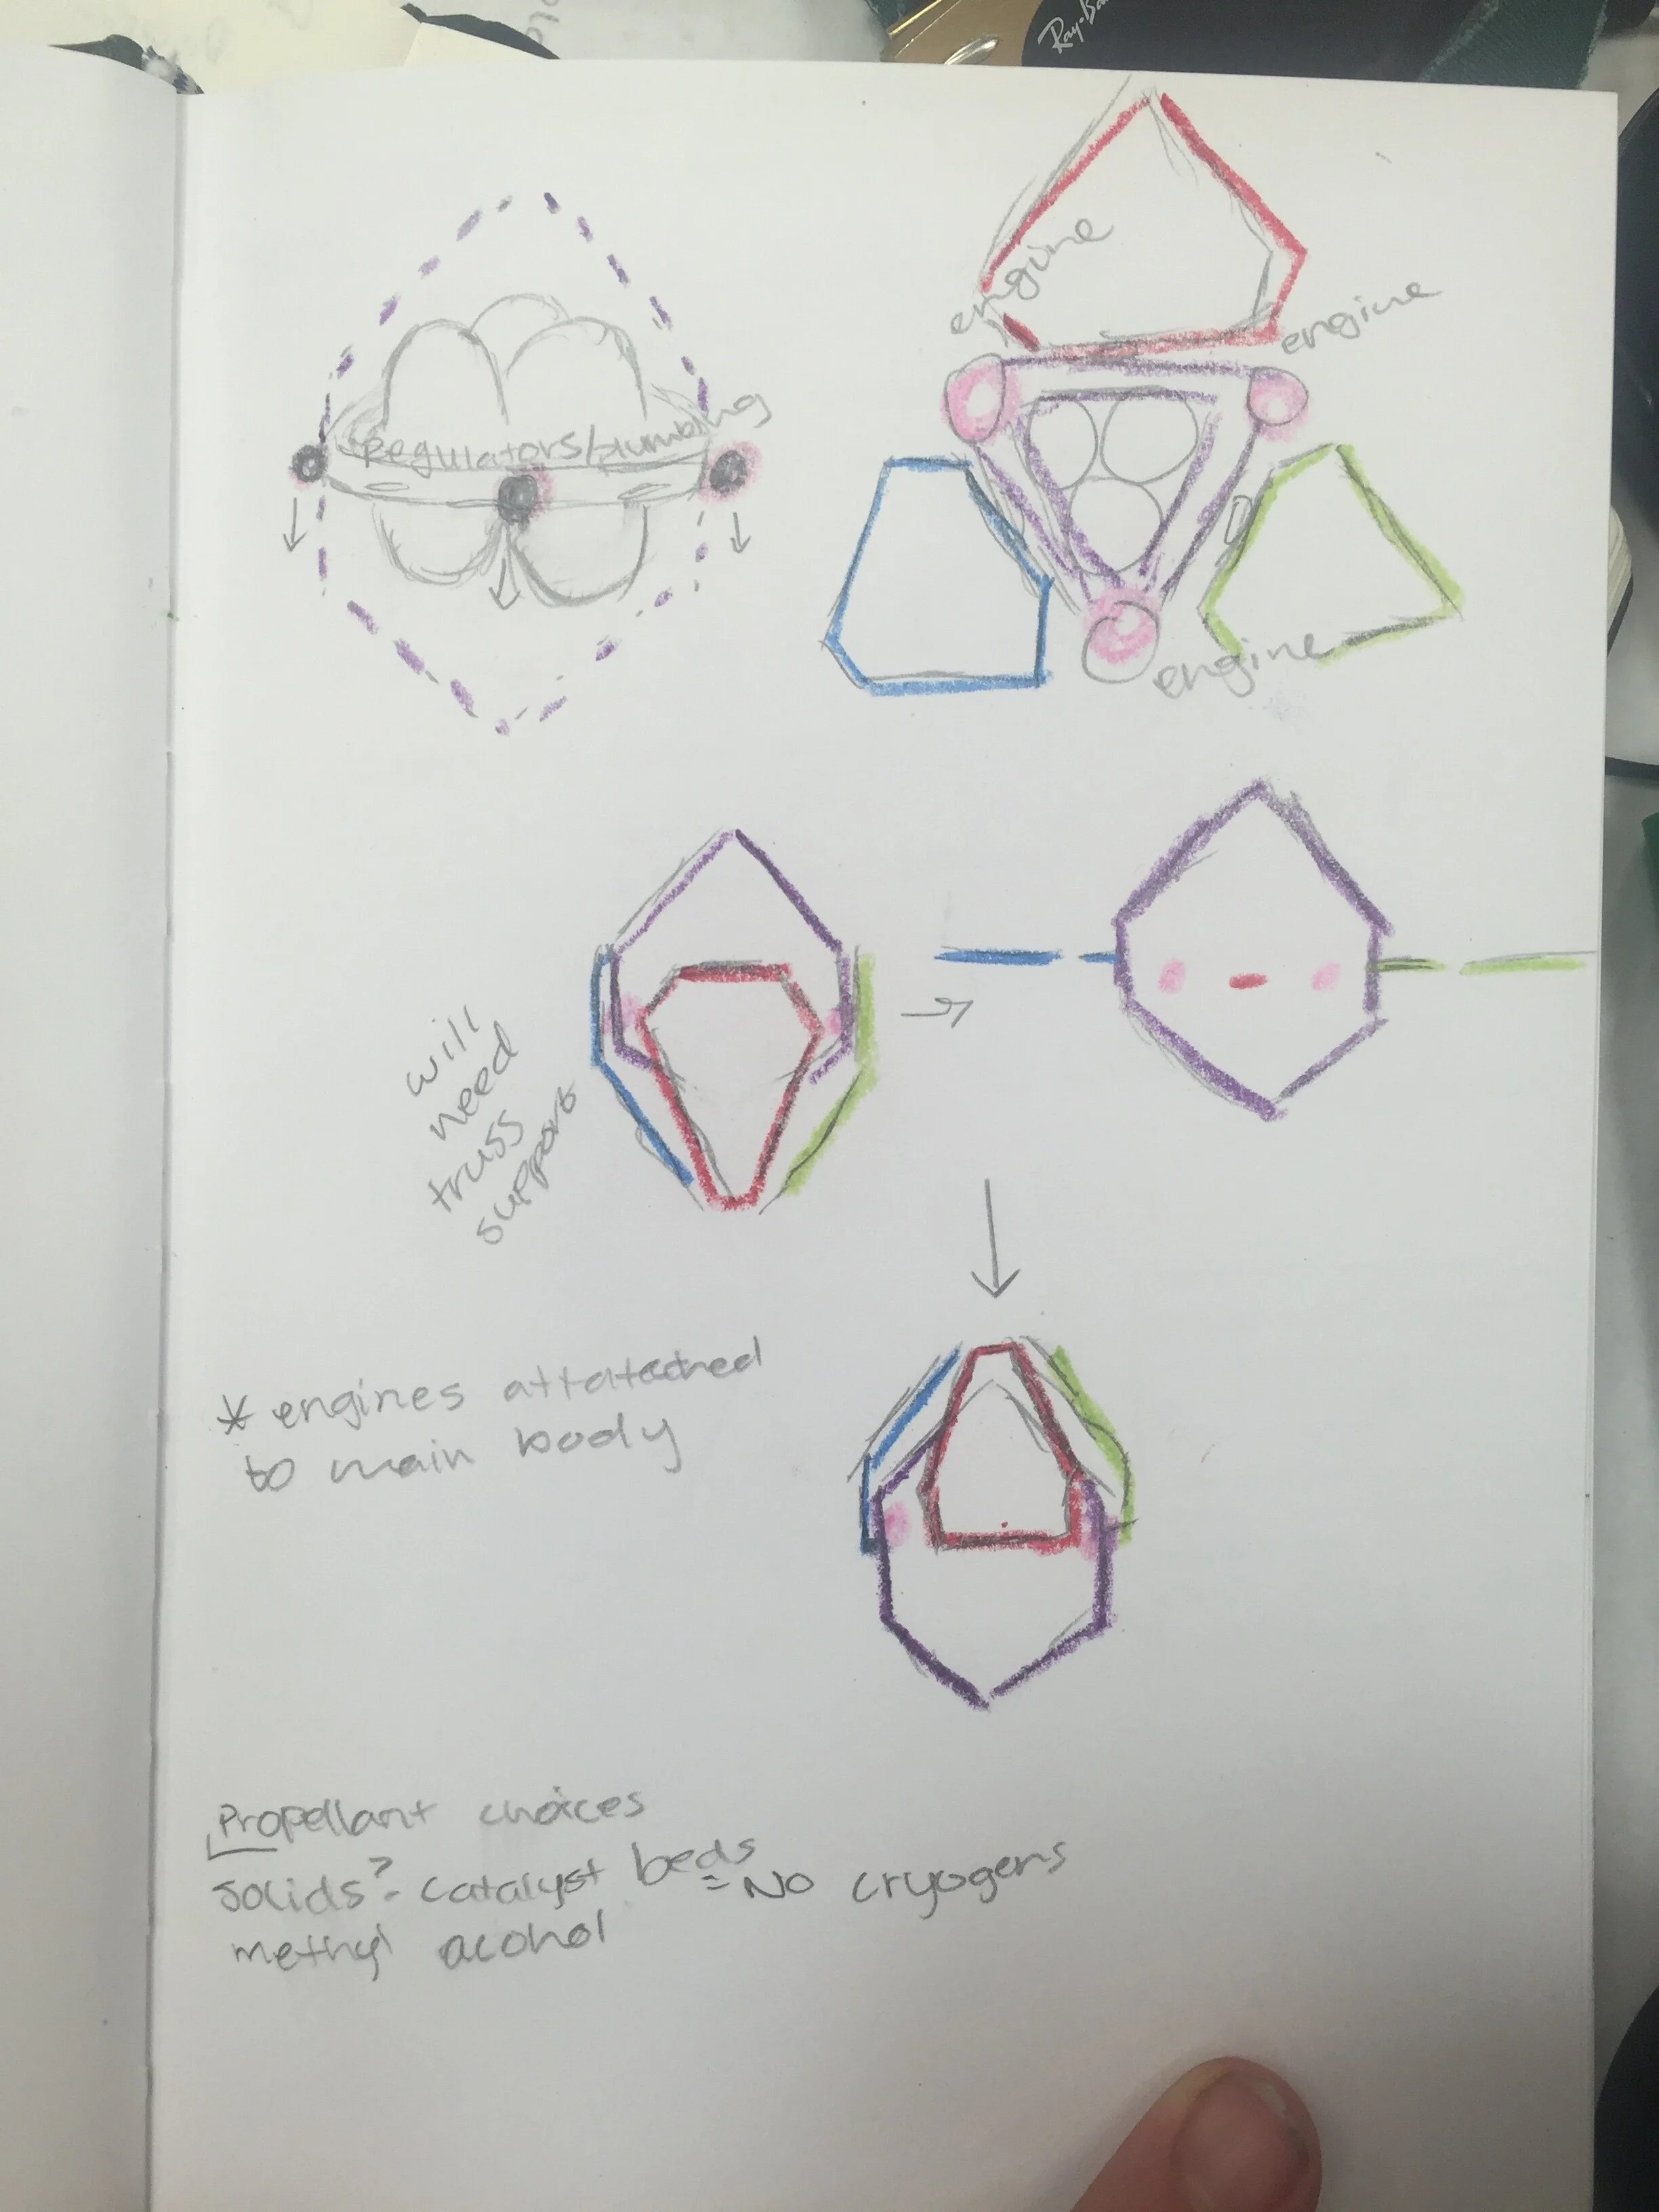 Ray-Ba
engine
engine
Regulators/plumbing
engine
will
need
truss
support
* engines attatched
to main body
Propellant choices
solids? - catalyst beds = NO cryogens
methyl acohol